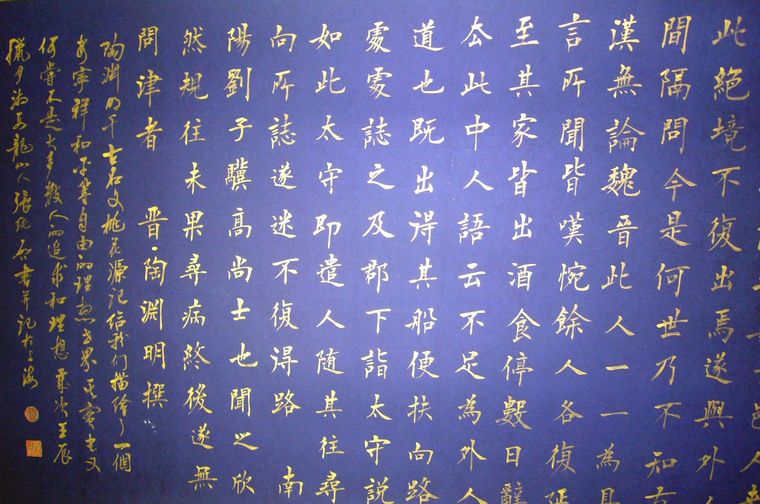 此絕境不復出焉遂與外
間隔問今是何世乃不知有
漢無論魏晉此人一一為具
言所聞皆嘆惋餘人各復延
至其家皆出酒食停數日辭
去此中人語云不足為外人
道也既出得其船便扶向路
處處誌之及郡下詣太守說
如此太守即遣人隨其往尋
向所誌遂迷不復得路 南
陽劉子驥高尚士也聞之欣
然規往未果尋病終後遂無
問津者 晉·陶淵明撰
陶淵明千古名文桃花源記給我們描繪了一個
安寧祥和平等自由的理想世界其實它又
何嘗不是大多數人的追求和理想 歲次壬辰
臘月 龍山人張 書并記於上海